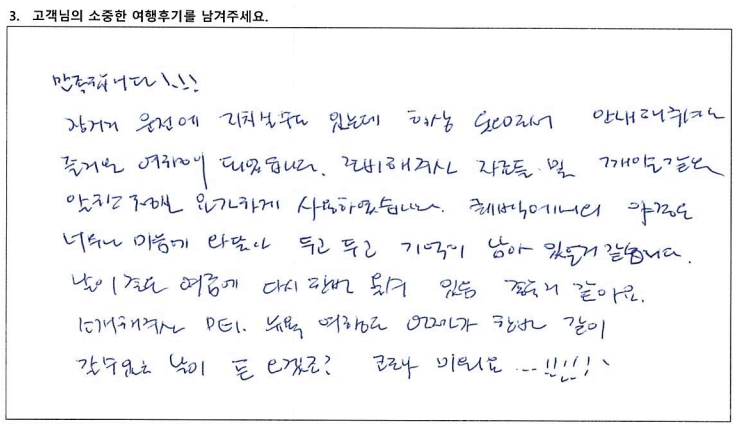 3. 고객님의 소중한 여행후기를 남겨주세요.
만족합니다!!!!
장거리 운전에 지치실수도 있는데 항상 웃으로서 안내해주셔서
즐거운 여행이 되었습니다. 준비해주신 자료들 및 깨알같은
알찬 정보 요긴하게 사용하였습니다. 퀘벡에서의 야경은
너무나 마음에 와닿아 두고 두고 기억이 남아 있을거 같습니다.
날이 좋은 여름에 다시 한번 올수 있음 좋을거 같아요.
소개해주신 PEI. 뉴욕 여행도 언젠가 한번 같이
갈수있는 날이 또 오겠죠? 코로나 미워요...!!!!!